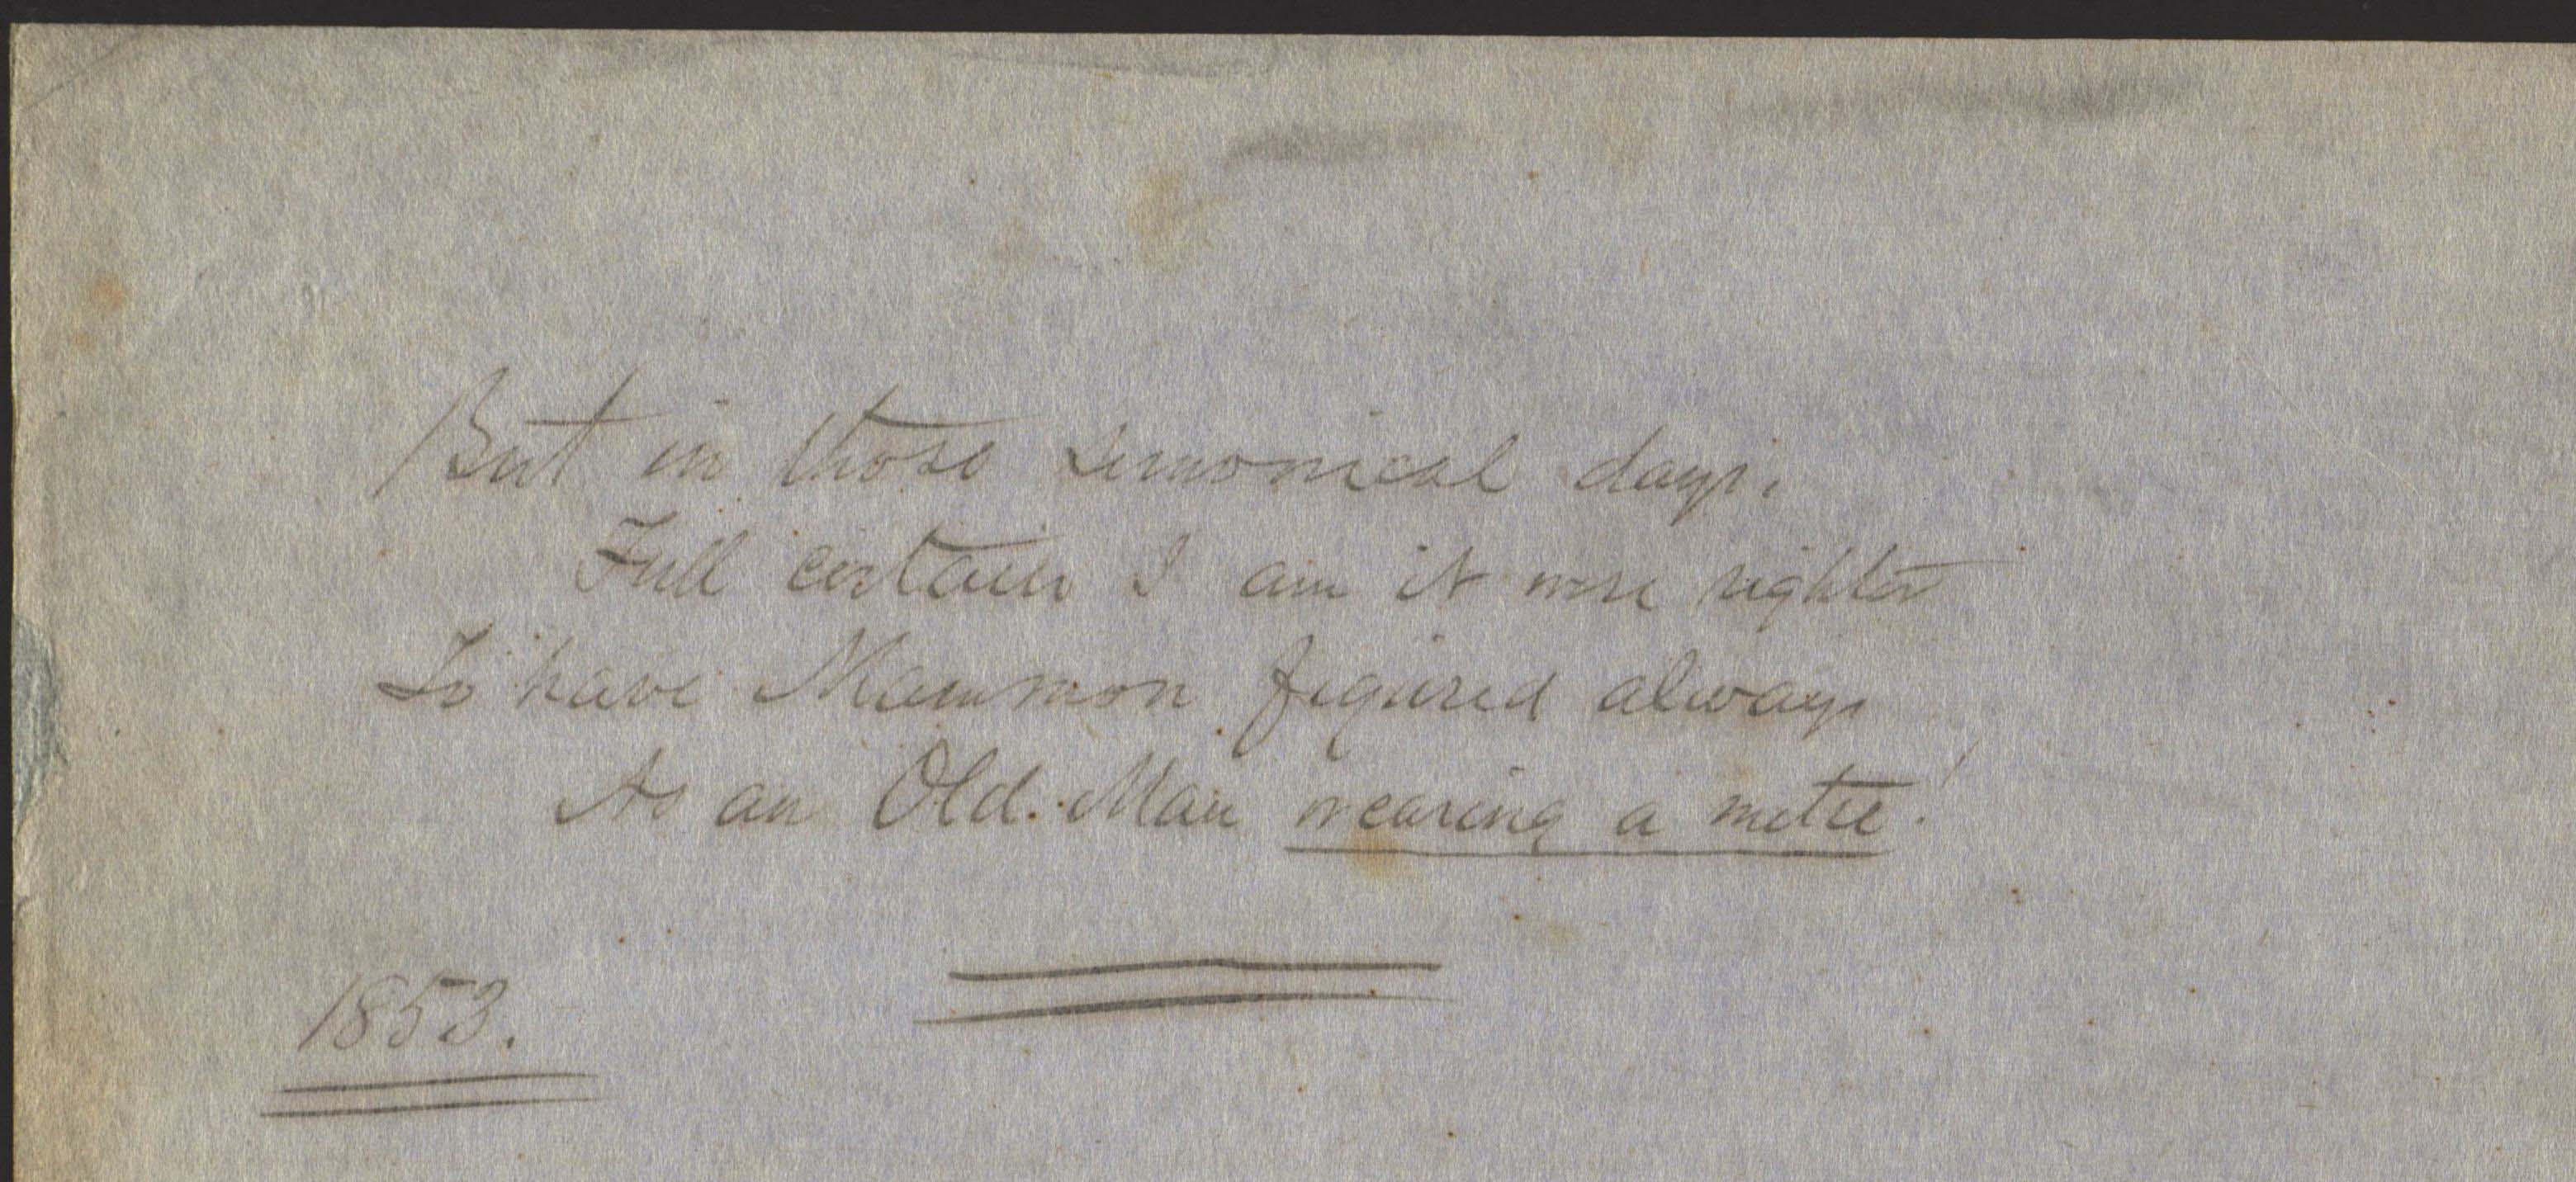 But in those simonical days,
Full certain I am it were righter
To have Mammon figured always
As an Old Man wearing a mitre!
1853.